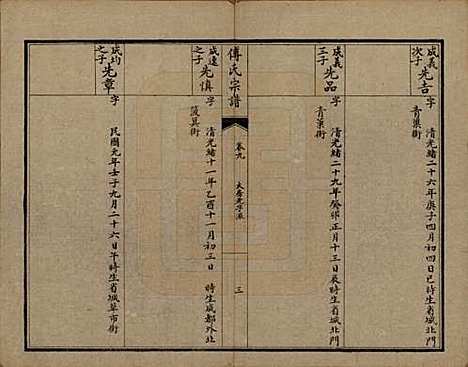 成義次子 先吉 字
清光緒二十六年庚子四月初四日巳時生省城北門
青果街
成義三子 先品 字
清光緒二十九年癸卯正月十三日辰時生省城北門
青果街
傅氏宗譜 卷九 三
成達之子 先慎 字
清光緒十一年乙酉十一月初三日 時生成都外北
簸箕街
成均之子 先章 字
民國元年壬子九月二十六日午時生省城草市街